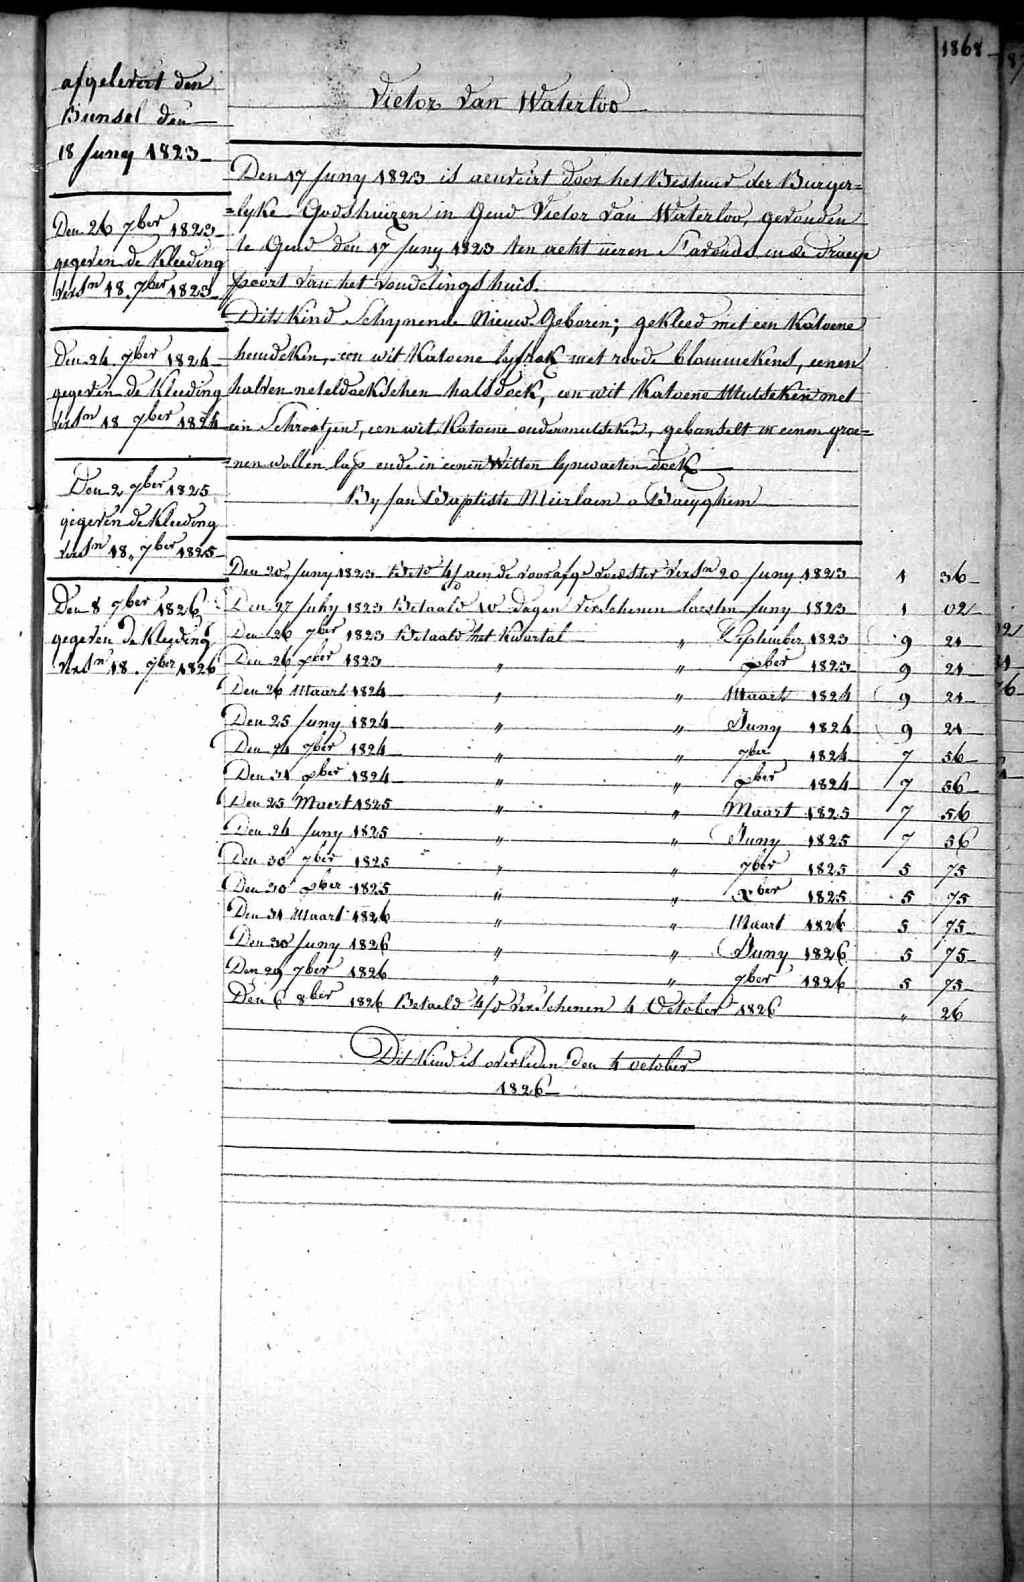 1868
afgelevert den
Bunsel den
18 Juny 1823
Den 26 7ber 1823
gegeven de Kleeding
versn 18. 7ber 1823
Den 24 7ber 1824
gegeven de Kleeding
versn 18 7ber 1824
Den 2 9ber 1825
gegeven de Kleeding
versn 18. 7ber 1825
Den 8 7ber 1826
gegeven de Kleeding
versn 18. 7ber 1826
Victor Van Waterloo
Den 17 Juny 1823 is aenveirt door het Bestuur der Burger=
=lyke Godshuizen in Gend Victor Van Waterloo, gevonden
te Gend den 17 Juny 1823 ten acht ueren S'avonds in de Draeye
poort van het Vondelingshuis.
Dits Kind Schynende Nieuw Geboren; gekleed met een Katoene
hemdeken, een wit Katoene lyfrok met roode blommekens, eenen
halven neteldoekschen halsdoek, een wit Katoene Mutseken met
een Schrootjen, een wit Katoene ondermutseken, gebonselt in eenen groe=
=nen wollen lap ende in eenen Witten lynwaeten doek
By Jan Baptiste Meirlaen a Baeyghem
Den 20 Juny 1823 Betd 4/d aen de voorafge voedster versn 20 Juny 1823 1 36
Den 27 July 1823 Betaeld 10 dagen verschenen laesten Juny 1823 1 02
Den 26 7ber 1823 Betaeld het Kwartal " September 1823 9 24
Den 26 xber 1823 " " xber 1823 9 24
Den 26 Maart 1824 " " Maart 1824 9 24
Den 25 Juny 1824 " " Juny 1824 9 24
Den 24 7ber 1824 " " 7ber 1824 7 56
Den 31 xber 1824 " " xber 1824 7 56
Den 25 Maert 1825 " " Maart 1825 7 56
Den 24 Juny 1825 " " Juny 1825 7 56
Den 30 7ber 1825 " " 7ber 1825 5 75
Den 30 xber 1825 " " xber 1825 5 75
Den 31 Maart 1826 " " Maart 1826 5 75
Den 30 Juny 1826 " " Juny 1826 5 75
Den 29 7ber 1826 " " 7ber 1826 5 75
Den 6 8ber 1826 Betaeld 4/d verschenen 4 October 1826 " 26
Dit Kind is overleden den 4 october
1826